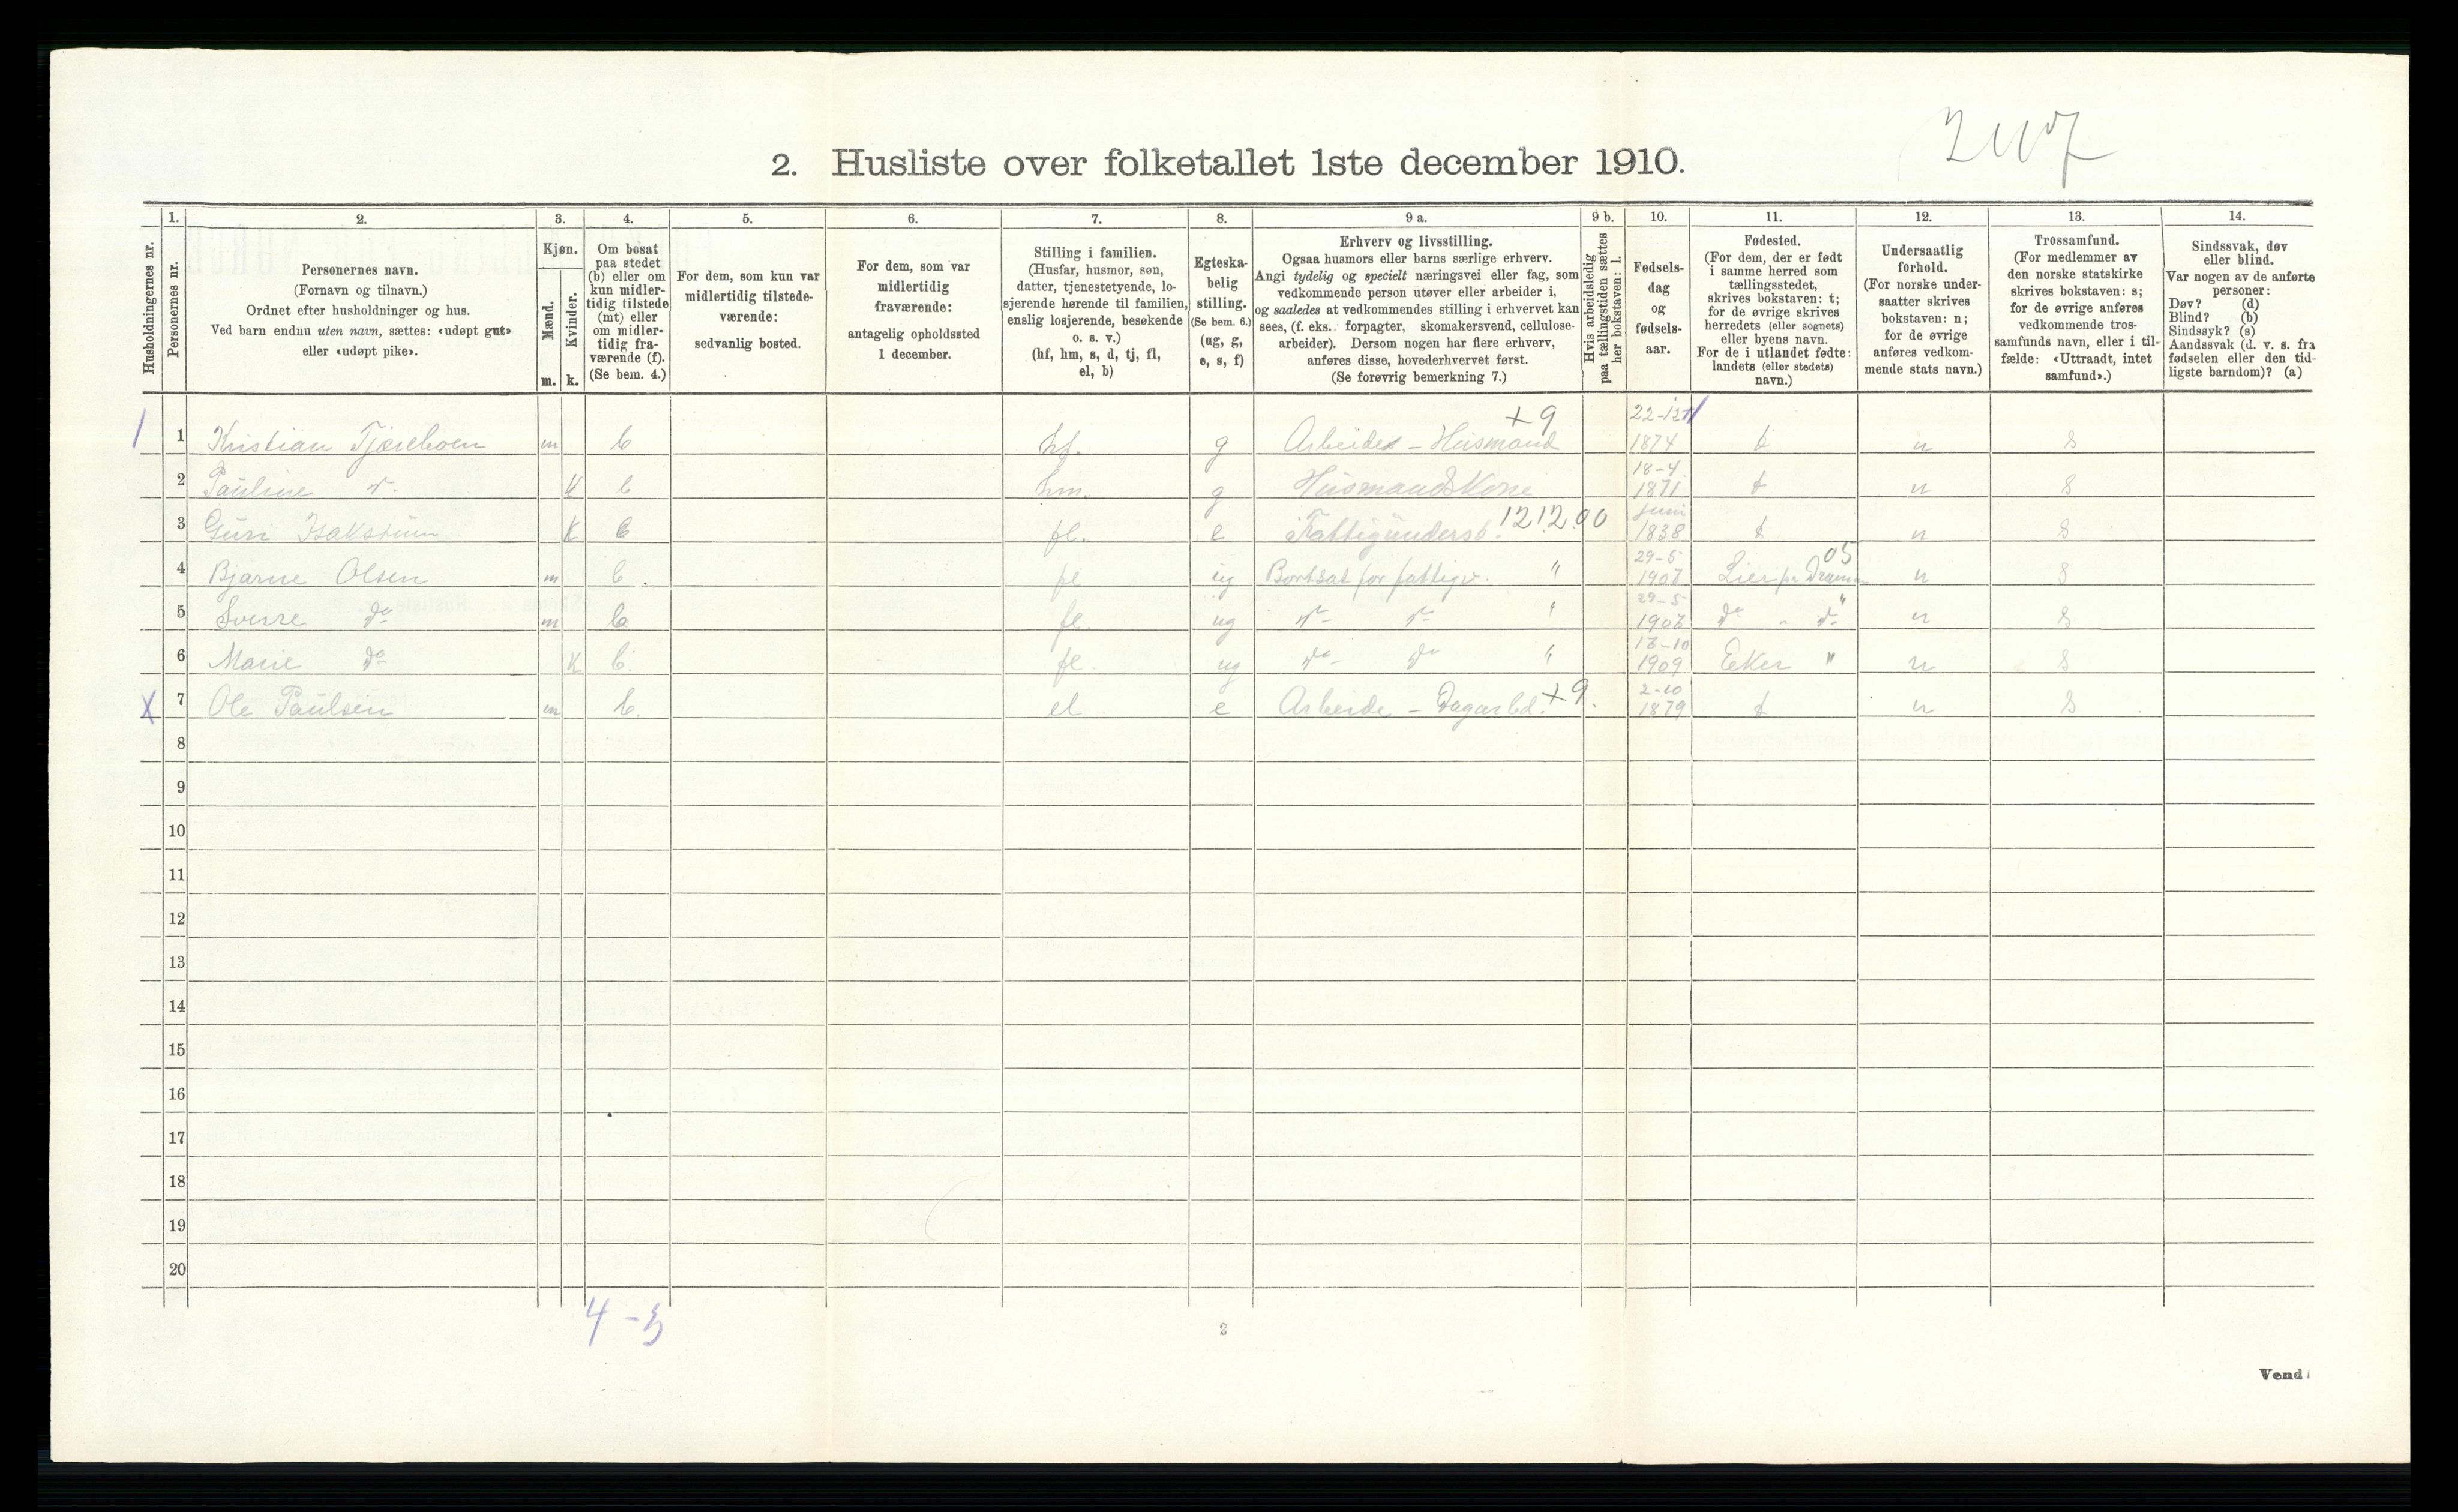 2. Husliste over folketallet 1ste december 1910.
Husholdningernes nr.
1.
Personernes nr.
2.
Personernes navn.
(Fornavn og tilnavn.)
Ordnet efter husholdninger og hus.
Ved barn endnu uten navn, sættes: «udøpt gut»
eller «udøpt pike».
3.
Kjøn.
Mænd.
Kvinder.
m. k.
4.
Om bosat
paa stedet
(b) eller om
kun midler-
tidig tilstede
(mt) eller
om midler-
tidig fra-
værende (f).
(Se bem. 4.)
5.
For dem, som kun var
midlertidig tilstede-
værende:
sedvanlig bosted.
6.
For dem, som var
midlertidig
fraværende:
antagelig opholdssted
1 december.
7.
Stilling i familien.
(Husfar, husmor, søn,
datter, tjenestetyende, lo-
sjerende hørende til familien,
enslig losjerende, besøkende
o. s. v.)
(hf, hm, s, d, tj, fl,
el, b)
8.
Egteska-
belig
stilling.
(Se bem. 6.)
(ug, g,
e, s, f)
9 a.
Erhverv og livsstilling.
Ogsaa husmors eller barns særlige erhverv.
Angi tydelig og specielt næringsvei eller fag, som
vedkommende person utøver eller arbeider i,
og saaledes at vedkommendes stilling i erhvervet kan
sees, (f. eks. forpagter, skomakersvend, cellulose-
arbeider). Dersom nogen har flere erhverv,
anføres disse, hovederhvervet først.
(Se forøvrig bemerkning 7.)
9 b.
Hvis arbeidsledig
paa tællingstiden sættes
her bokstaven: l.
10.
Fødsels-
dag
og
fødsels-
aar.
11.
Fødested.
(For dem, der er født
i samme herred som
tællingsstedet,
skrives bokstaven: t;
for de øvrige skrives
herredets (eller sognets)
eller byens navn.
For de i utlandet fødte:
landets (eller stedets)
navn.)
12.
Undersaatlig
forhold.
(For norske under-
saatter skrives
bokstaven: n;
for de øvrige
anføres vedkom-
mende stats navn.)
13.
Trossamfund.
(For medlemmer av
den norske statskirke
skrives bokstaven: s;
for de øvrige anføres
vedkommende tros-
samfunds navn, eller i til-
fælde: «Uttraadt, intet
samfund».)
14.
Sindssvak, døv
eller blind.
Var nogen av de anførte
personer:
Døv? (d)
Blind? (b)
Sindssyk? (s)
Aandssvak (d. v. s. fra
fødselen eller den tid-
ligste barndom)? (a)
+9 22-12
1 Kristian m b hf. g Arbeider - Husmand 1874 t n s
18-4
2 Pauline K b hm. g Husmandskone 1871 t n s
121200 Juni
3 Guri K b fl. e 1838 t n s
29-5 05
4 Bjarne Olsen m b. fl ug Bortsat for fattigv. " 1907 Lier pr Drammen n s
29-5 "
5 Sverre do m b fl. ug do do " do - do n s
13-10
6 Marie do K b. fl. ug do do " 1909 Eker " n s
+9. 2-10
x 7 Ole Paulsen m b. el e Arbeide - Dagarbd. 1879 t n s
8
9
10
11
12
13
14
15
16
17
18
19
20
4-3
2
Vend